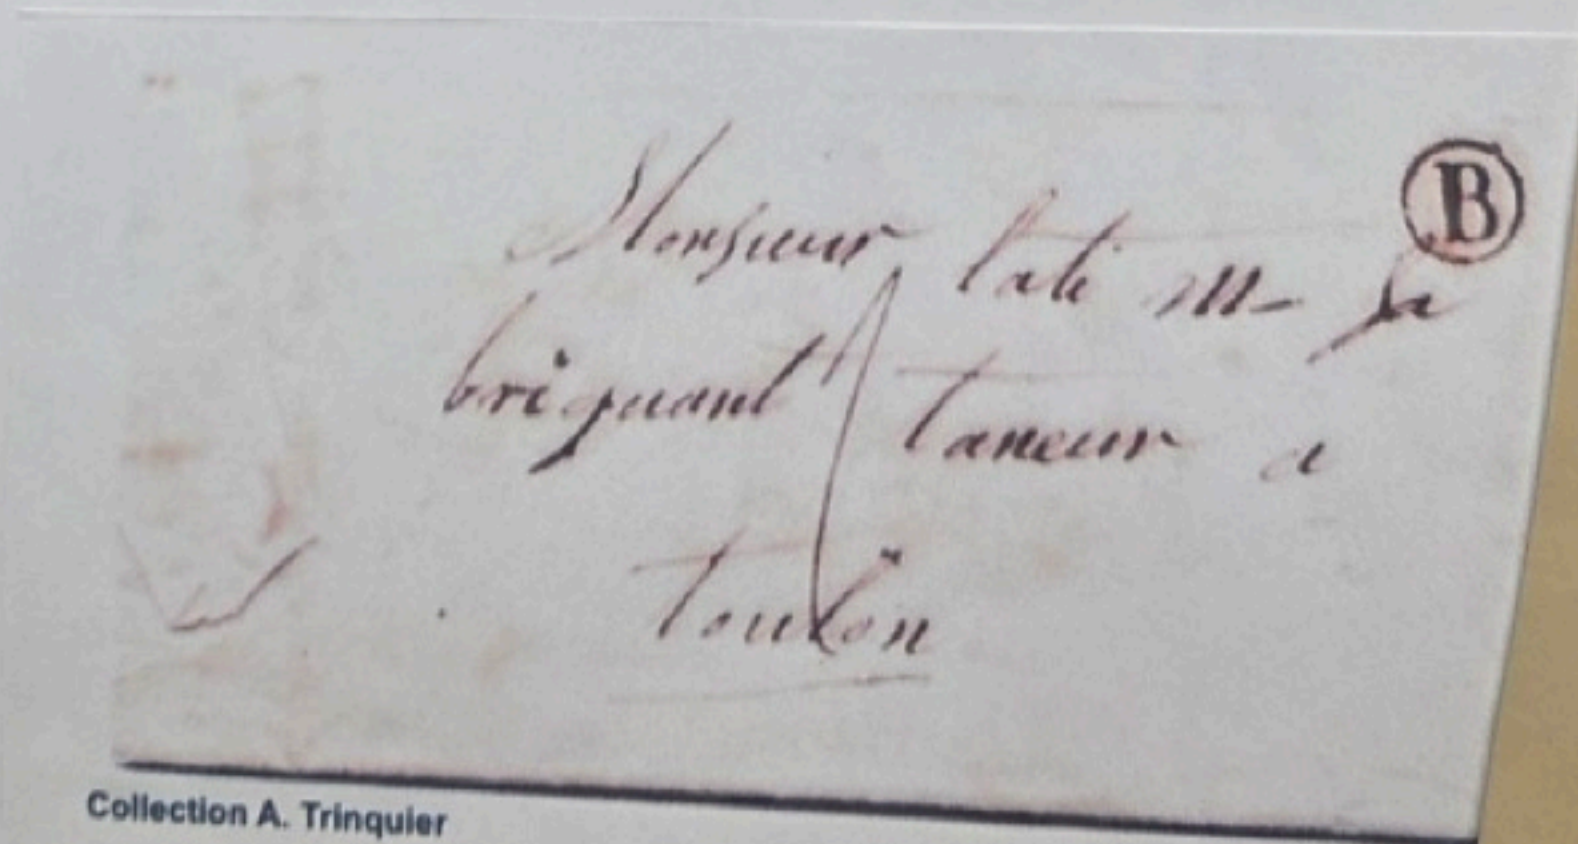 B
Monsieur lati m- fa
briquant taneur a
toulon
Collection A. Trinquier